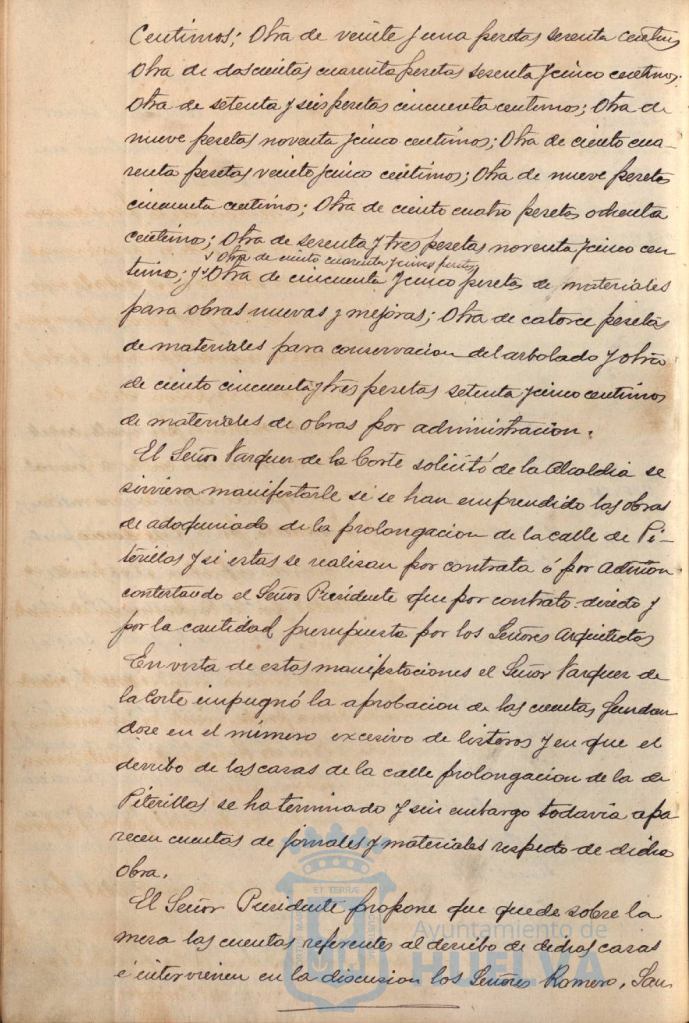 Centimos; Otra de veinte y una pesetas sesenta centimos
Otra de doscientas cuarenta pesetas sesenta y cinco centimos;
Otra de setenta y seis pesetas cincuenta centimos; Otra de
nueve pesetas noventa y cinco centimos; Otra de ciento cua-
renta pesetas veinte y cinco centimos; Otra de nueve pesetas
cincuenta centimos; Otra de ciento cuatro pesetas ochenta
centimos; Otra de sesenta y tres pesetas noventa y cinco cen
y Otra de ciento cuarenta y cinco pesetas
timos; y Otra de cincuenta y cinco pesetas de materiales
para obras nuevas y mejoras; Otra de catorce pesetas
de materiales para conservacion del arbolado y otra
de ciento cincuenta y tres pesetas setenta y cinco centimos
de materiales de obras por administracion.
El Señor Vazquez de la Corte solicitó de la Alcaldia se
sirviera manifestarle si se han emprendido las obras
de adoquinado de la prolongacion de la calle de Pi-
terillas y si estas se realizan por contrata ó por admon
contestando el Señor Presidente que por contrato directo y
por la cantidad presupuesta por los Señores Arquitectos
En vista de estas manifestaciones el Señor Vazquez de
la Corte impugnó la aprobacion de las cuentas fundan
dose en el número excesivo de listeros y en que el
derribo de las casas de la calle prolongacion de la de
Piterillas se ha terminado y sin embargo todavia apa
recen cuentas de jornales y materiales respecto de dicha
obra.
El Señor Presidente propone que quede sobre la
mesa las cuentas referentes al derribo de dichas casas
é intervienen en la discusion los Señores Romero, San
Ayuntamiento de
HUELVA